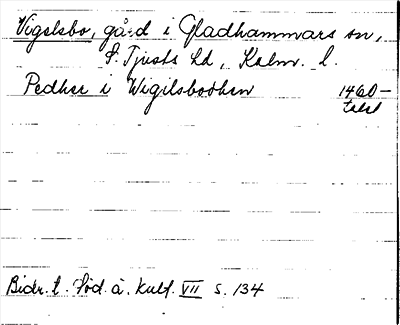 Vigelsbo, gård i Gladhammars sn,
S. Tjusts hd, Kalm. l.
Pedher i Wigilsbodhen 1460-
talet
Bidr. t. Söd. å. kult. VII s. 134